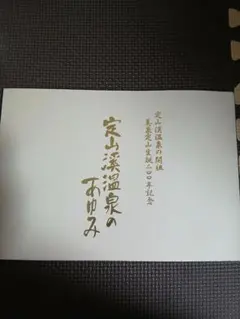 定山渓温泉の開祖
美泉定山生誕二〇〇年記念
定山渓温泉の
あゆみ